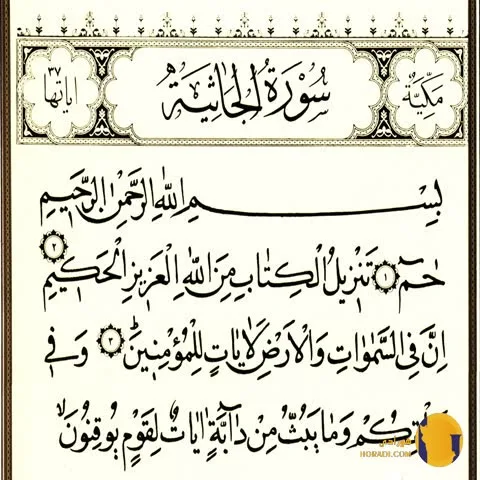 مَكِّيَّةٌ سُورَةُ الْجَاثِيَةِ اٰيَاتُهَا ٣٧
بِسْمِ اللّٰهِ الرَّحْمٰنِ الرَّحِيمِ
حٰمٓ ۝١ تَنْزِيلُ الْكِتَابِ مِنَ اللّٰهِ الْعَزِيزِ الْحَكِيمِ ۝٢
اِنَّ فِى السَّمٰوَاتِ وَالْاَرْضِ لَاٰيَاتٍ لِلْمُؤْمِنِينَ ۝٣ وَفِى
وَمَا يَبُثُّ مِنْ دَآبَّةٍ اٰيَاتٌ لِقَوْمٍ يُوقِنُونَ
HORADI.COM